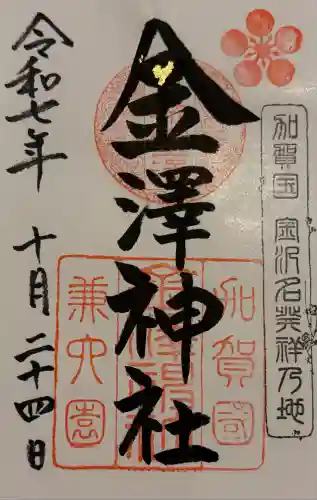 加賀国 金沢名発祥乃地
金澤神社
加賀國
兼六園
令和七年 十月 二十四日